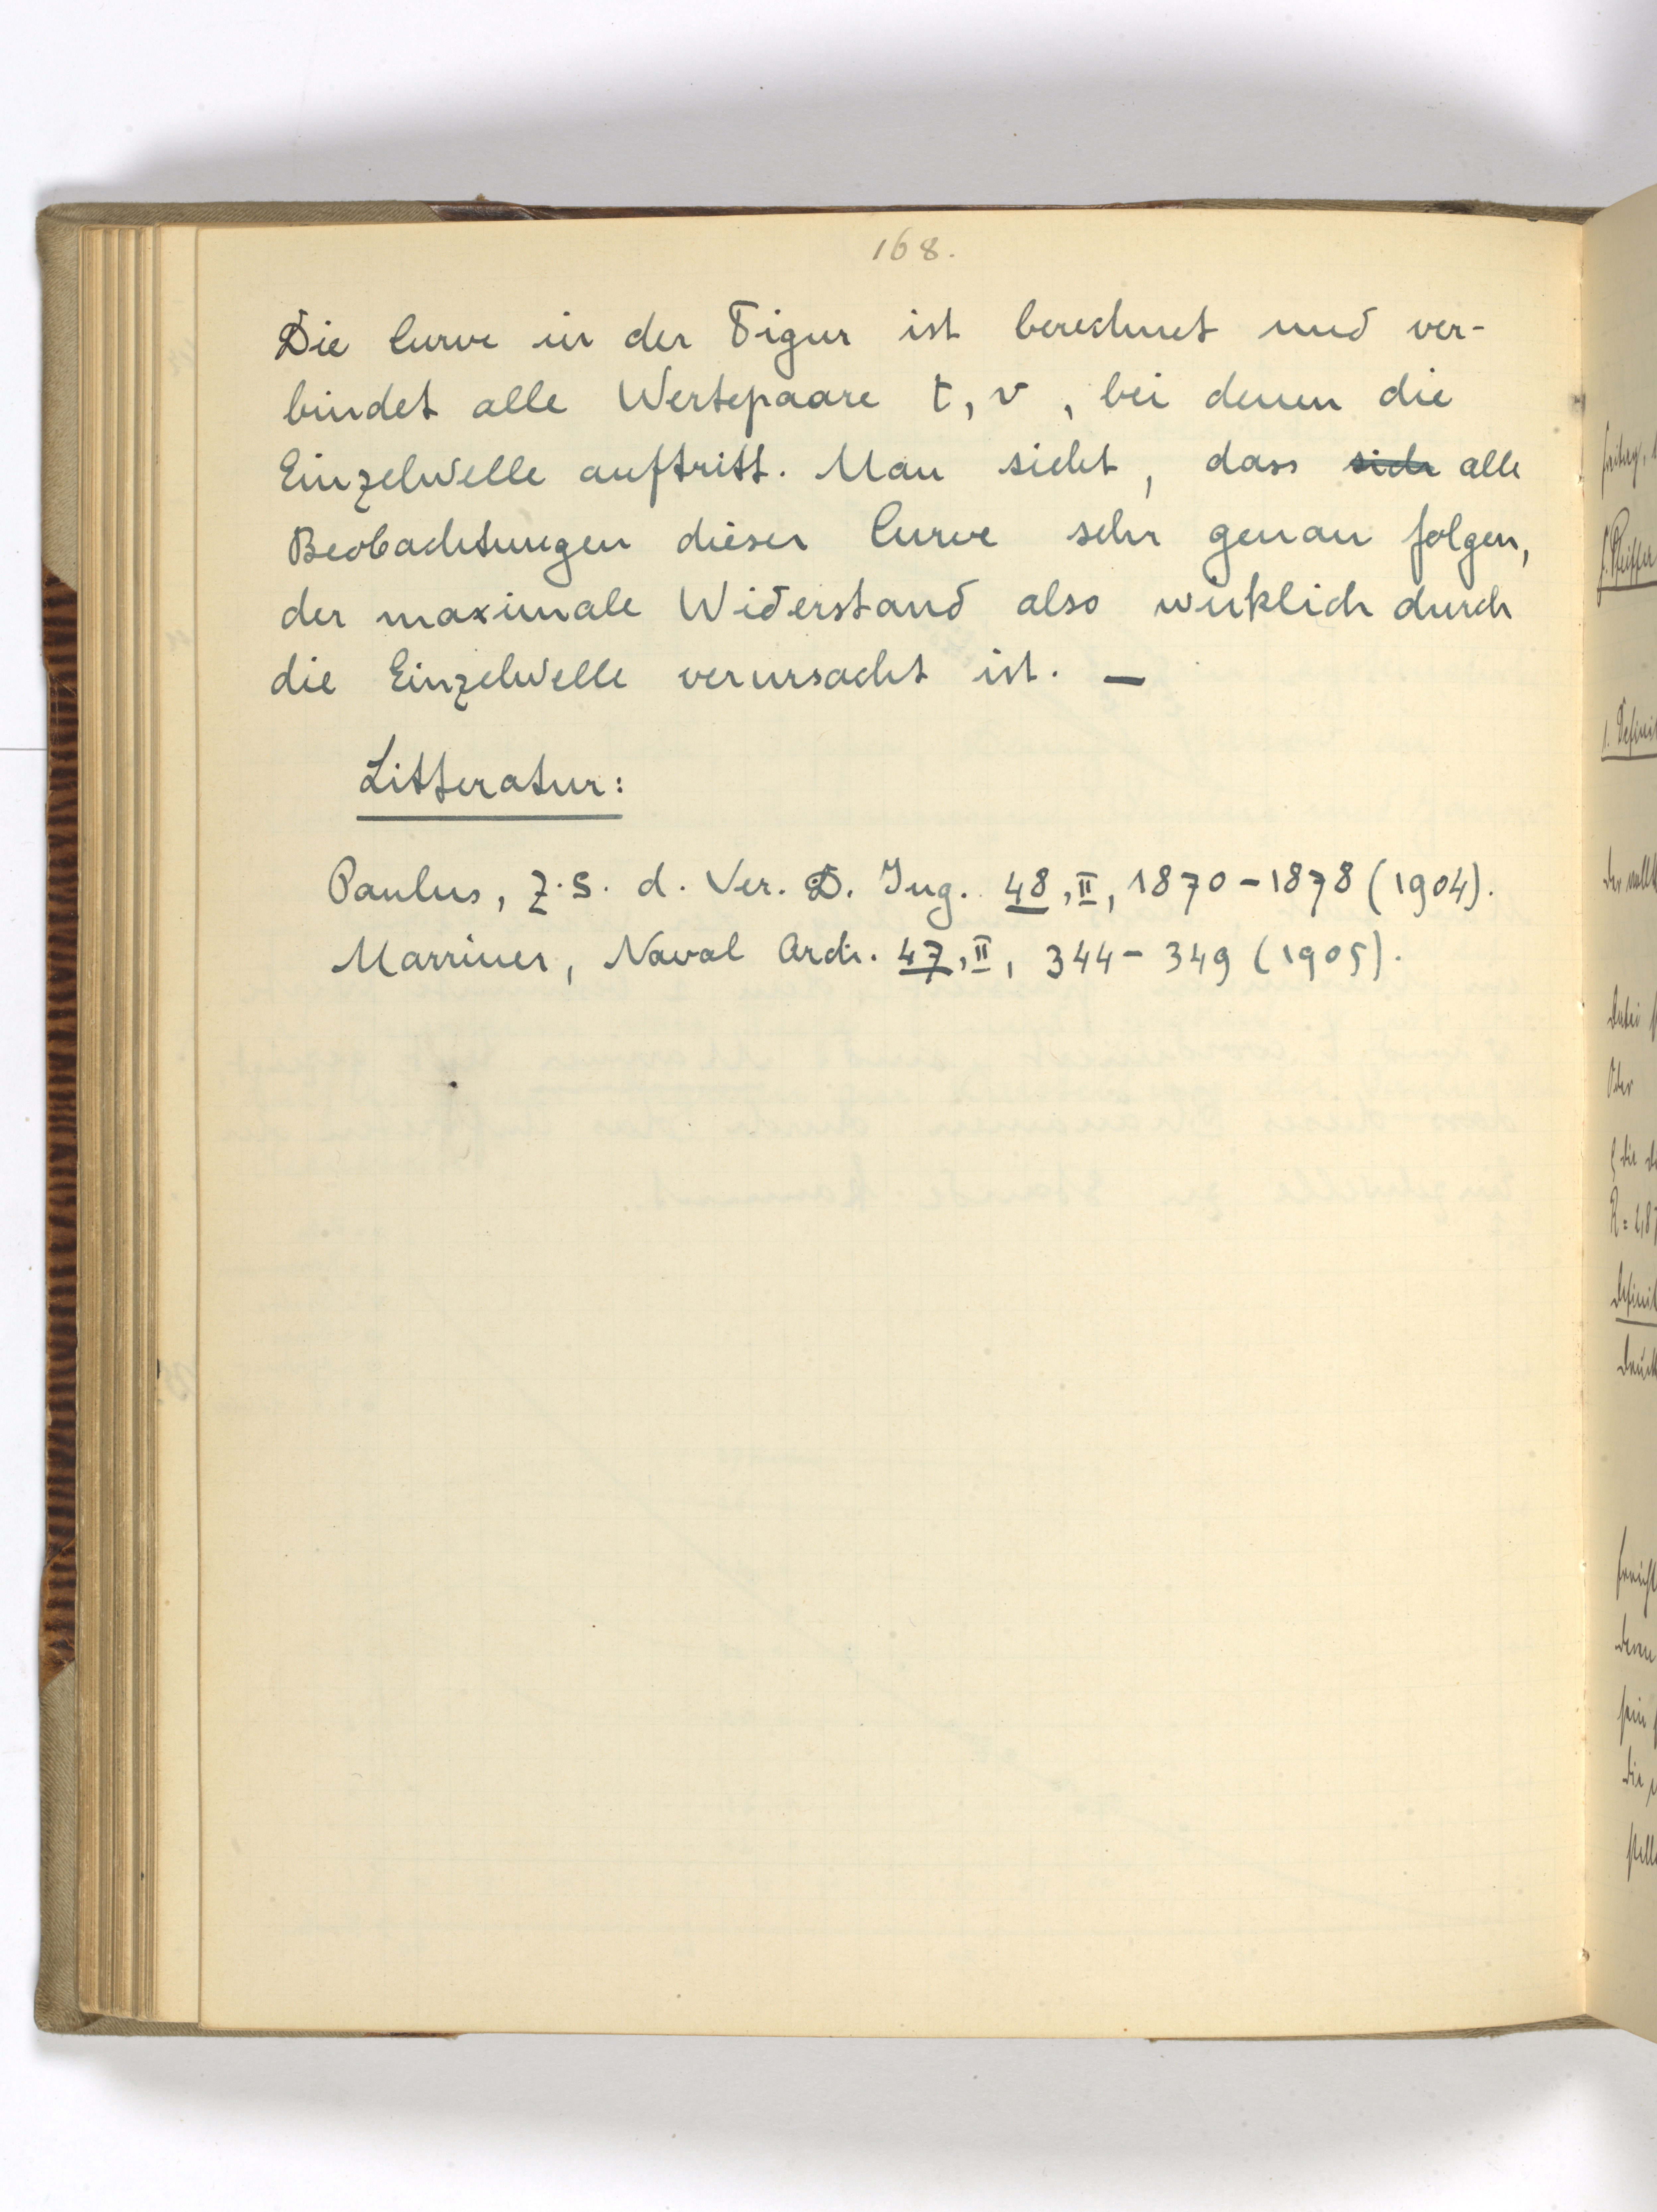 168.
Die Curve in der Figur ist berechnet und ver-
bindet alle Wertepaare t, v, bei denen die
Einzelwelle auftritt. Man sieht, dass sich alle
Beobachtungen dieser Curve sehr genau folgen,
der maximale Widerstand also wirklich durch
die Einzelwelle verursacht ist. —
Litteratur:
Paulus, Z. S. d. Ver. D. Ing. 48, II, 1870-1878 (1904).
Marriner, Naval Arch. 47, II, 344-349 (1905).